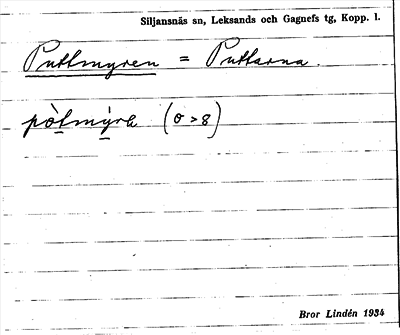 Siljansnäs sn, Leksands och Gagnefs tg, Kopp. l.
Puttmyren = Puttarna.
pòtmýra (o > 8)
Bror Lindén 1934